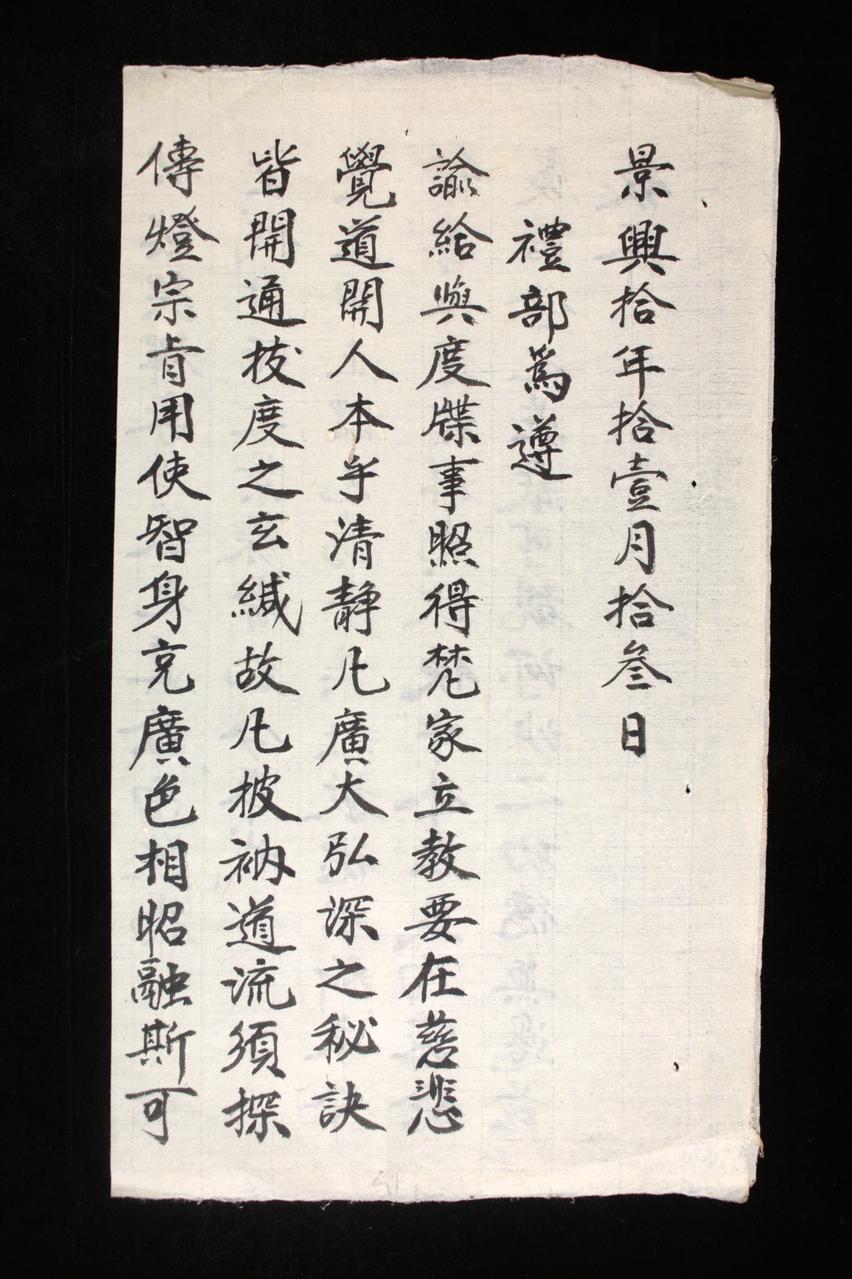 景興拾年拾壹月拾叁日
禮部為遵
諭給與度牒事照得梵家立教要在慈悲
覺道開人本乎清靜凡廣大弘深之秘訣
皆開通拔度之玄緘故凡披衲道流須探
傳燈宗肯用使智身充廣色相昭融斯可